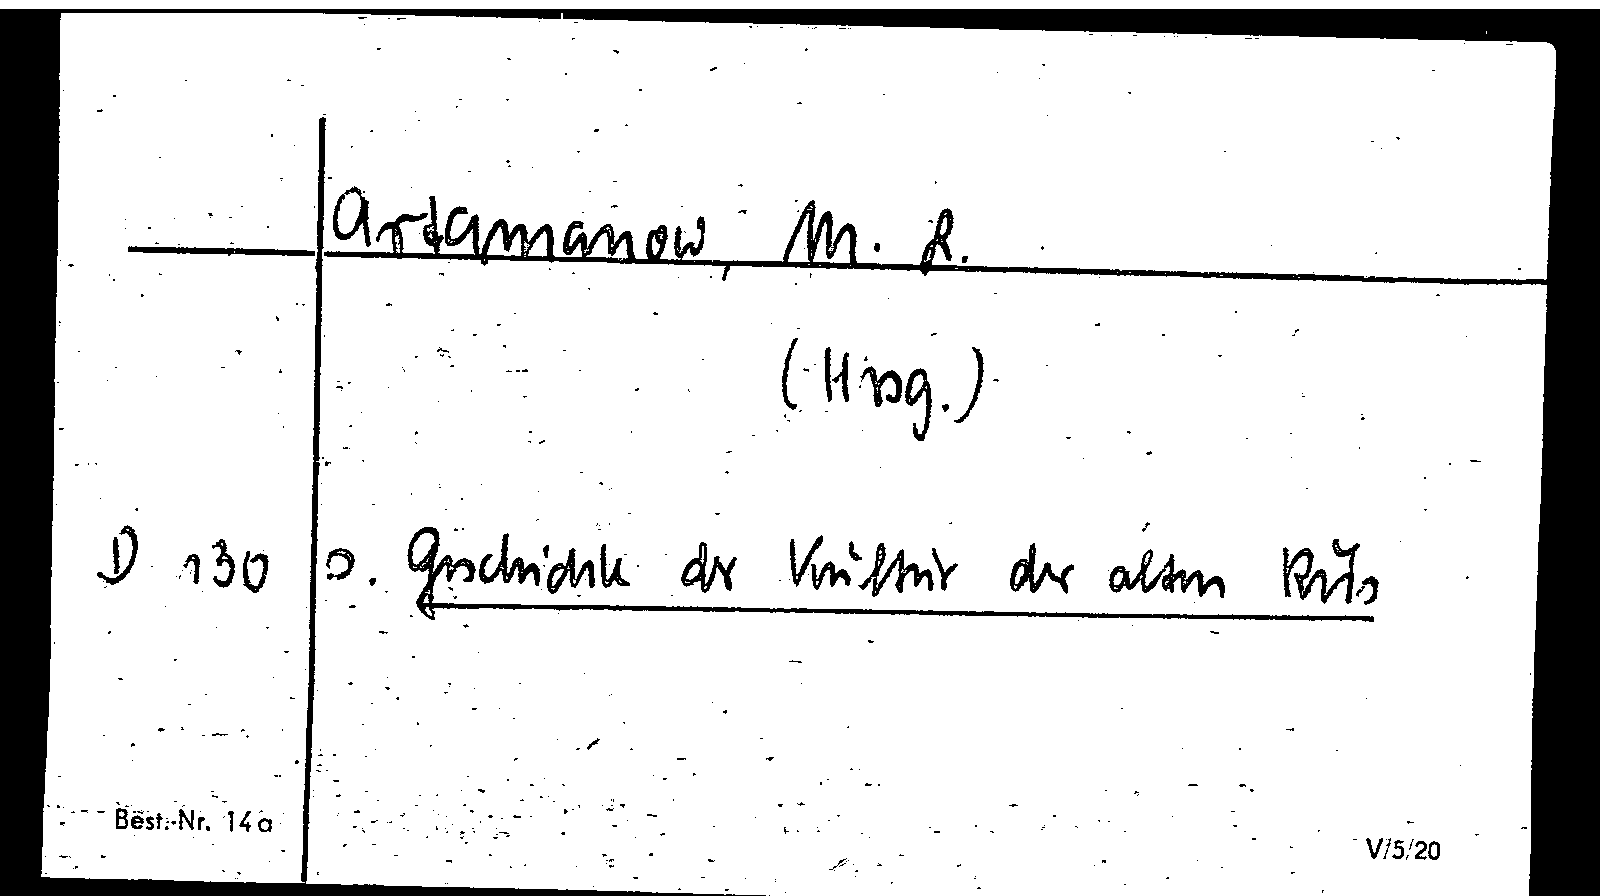 Artamanow, M. I.
(Hrsg.)
D 130 s. Geschichte der Kultur der alten Rus
Best.-Nr. 14a
V/5/20